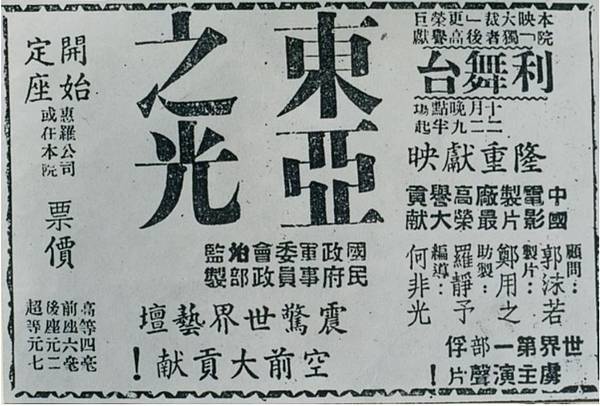 本院映「大獨裁者」後更高榮譽巨獻
利舞台
十二月二晚九點半場起
隆重獻映
中國電影製片廠最高榮譽大貢獻
顧問:郭沫若
製片:鄭用之
助製:羅靜予
編導:何非光
世界第一部俘
虜主演聲片!
東亞
之光
國民政府軍事委員會政治部監製
震驚世界藝壇
空前大貢獻!
開始定座
惠羅公司或在本院
票價
高等四毫
前座六毫
後座元二
超等元七